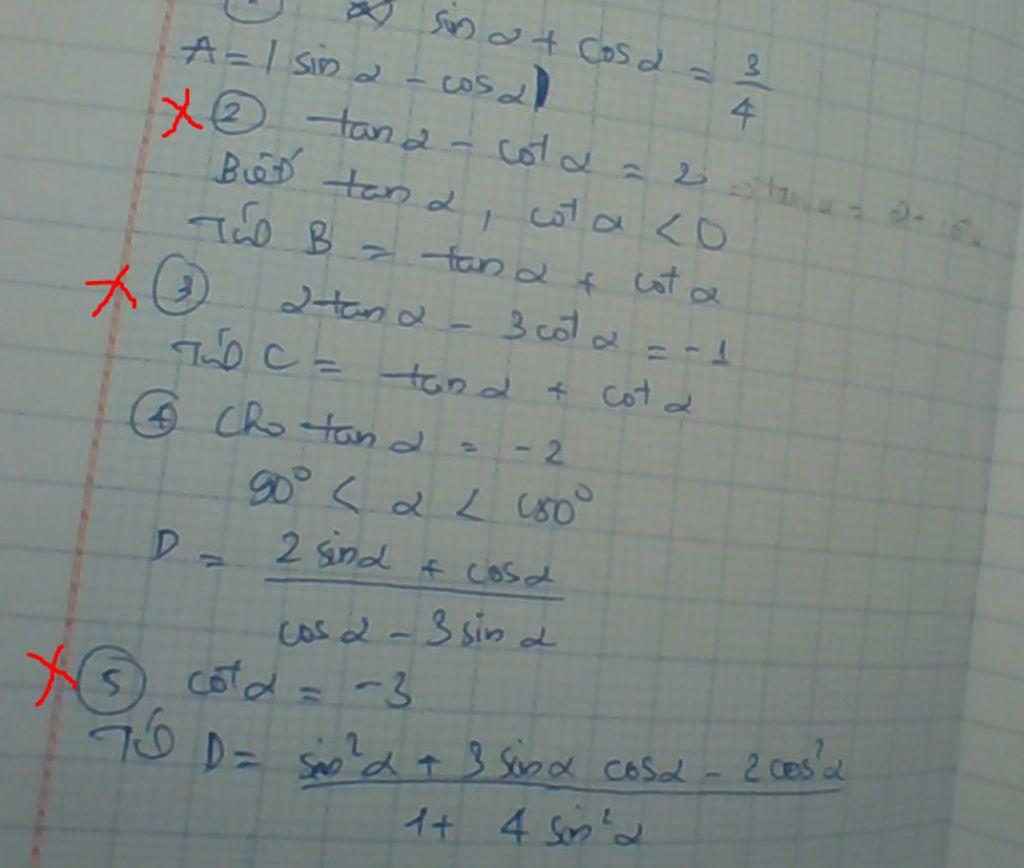 ① a) sin α + cos α = 3/4
A = | sin α - cos α |
② tan α - cot α = 2
Biết tan α, cot α < 0
Tính B = tan α + cot α
③ 2 tan α - 3 cot α = -1
Tính C = tan α + cot α
④ Cho tan α = -2
90° < α < 180°
D = (2 sin α + cos α) / (cos α - 3 sin α)
⑤ cot α = -3
Tính D = (sin² α + 3 sin α cos α - 2 cos² α) / (1 + 4 sin² α)